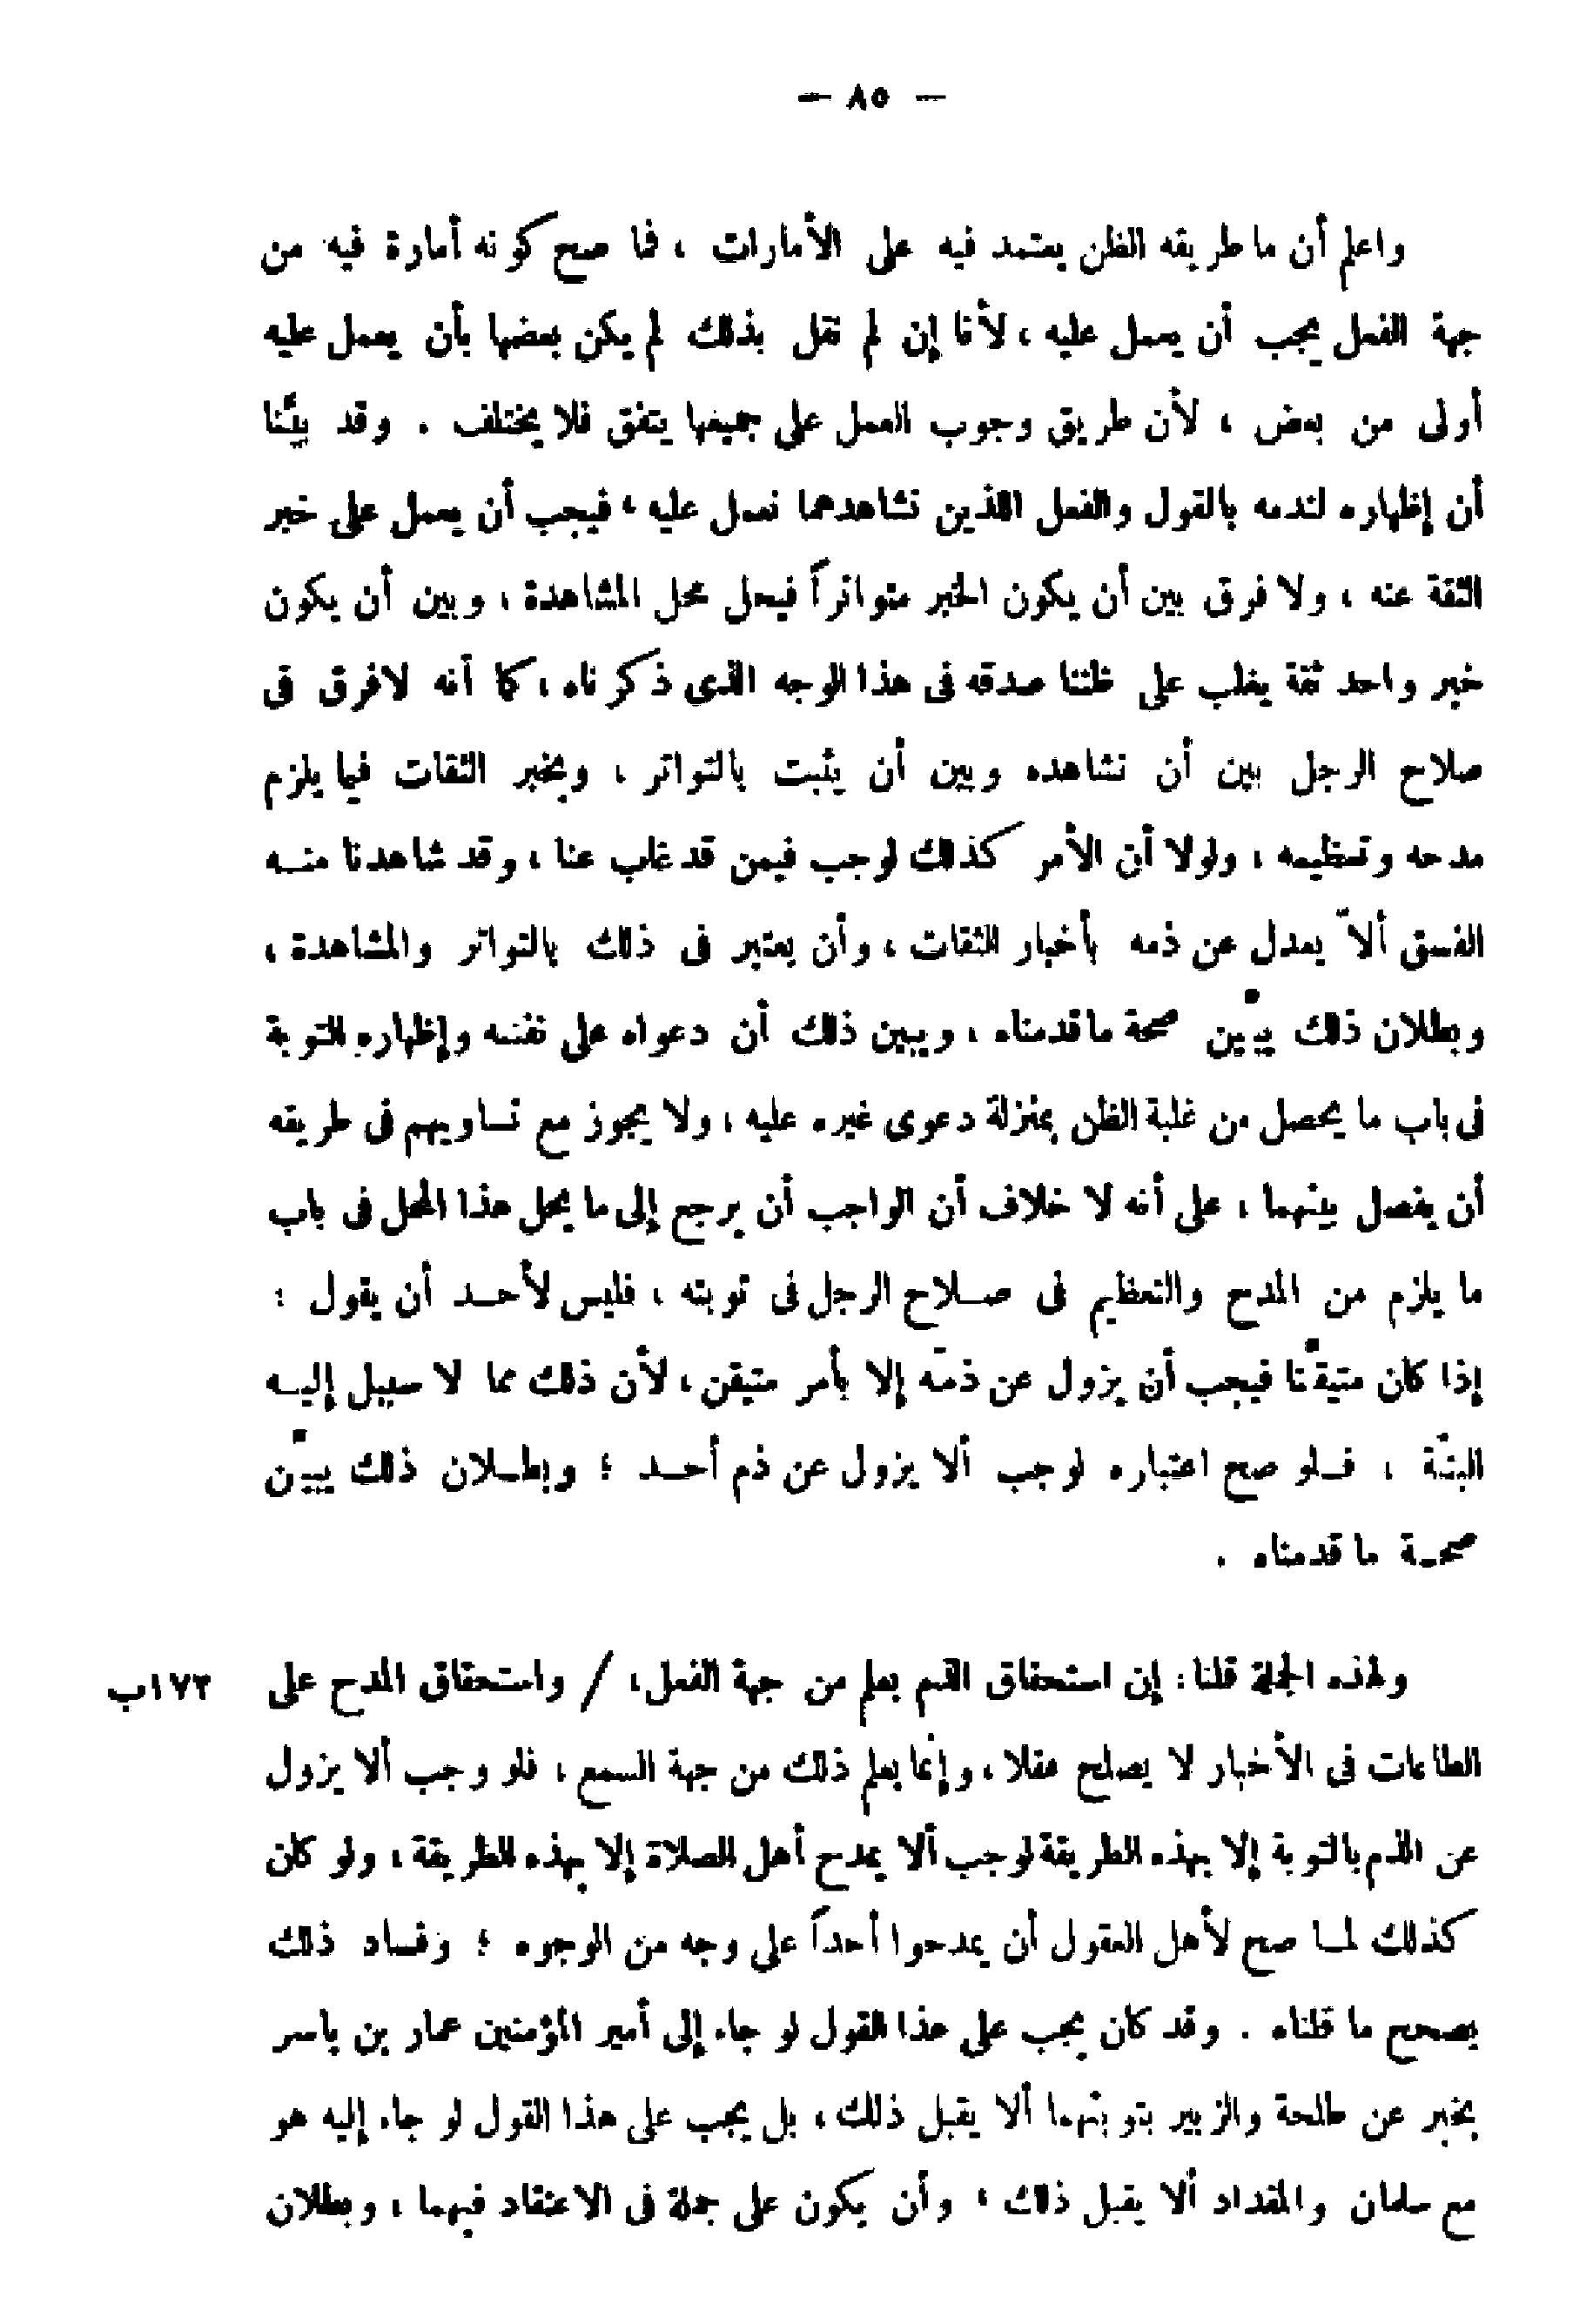 — ٨٥ —
واعلم أن ما طريقه الظن يعتمد فيه على الأمارات ، فما صح كونه أمارة فيه من
جهة الفعل يجب أن يعمل عليه ، لأنا إن لم نقل بذلك لم يكن بعضها بأن يعمل عليه
أولى من بعض ، لأن طريق وجوب العمل على جميعها يتفق فلا يختلف . وقد بيَّنا
أن إظهاره لندمه بالقول والفعل اللذين نشاهدهما نعمل عليه ، فيجب أن يعمل على خبر
الثقة عنه ، ولا فرق بين أن يكون الخبر متواتراً فيحل محل المشاهدة ، وبين أن يكون
خبر واحد ثقة يغلب على ظننا صدقه فى هذا الوجه الذى ذكرناه ، كما أنه لا فرق فى
صلاح الرجل بين أن نشاهده وبين أن يثبت بالتواتر ، وبخبر الثقات فيما يلزم
مدحه وتعظيمه ، ولولا أن الأمر كذلك لوجب فيمن قد غاب عنا ، وقد شاهدنا منه
الفسق ألاّ يعدل عن ذمه بأخبار الثقات ، وأن يعتبر فى ذلك بالتواتر والمشاهدة ،
وبطلان ذلك يبيّن صحة ما قدمناه ، ويبين ذلك أن دعواه على نفسه وإظهاره للتوبة
فى باب ما يحصل من غلبة الظن بمنزلة دعوى غيره عليه ، ولا يجوز مع تساويهم فى طريقه
أن يفصل بينهما ، على أنه لا خلاف أن الواجب أن يرجع إلى ما يحل هذا المحل فى باب
ما يلزم من المدح والتعظيم فى صلاح الرجل فى توبته ، فليس لأحد أن يقول :
إذا كان متيقنّا فيجب أن يزول عن ذمّه إلا بأمر متيقن ، لأن ذلك مما لا سبيل إليه
البتّة ، فلو صح اعتباره لوجب ألا يزول عن ذم أحد ؛ وبطلان ذلك يبيّن
صحة ما قدمناه .
ولهذه الجملة قلنا : إن استحقاق الذم يعلم من جهة الفعل ، / واستحقاق المدح على ١٧٣ب
الطاعات فى الأخبار لا يصلح عقلا ، وإنما يعلم ذلك من جهة السمع ، فلو وجب ألا يزول
عن الذم بالتوبة إلا بهذه الطريقة لوجب ألا يمدح أهل الصلاة إلا بهذه الطريقة ، ولو كان
كذلك لما صح لأهل العقول أن يمدحوا أحداً على وجه من الوجوه ؛ وفساد ذلك
يصحح ما قلناه . وقد كان يجب على هذا القول لو جاء إلى أمير المؤمنين عمار بن ياسر
بخبر عن طلحة والزبير بتوبتهما ألا يقبل ذلك ، بل يجب على هذا القول لو جاء إليه هو
مع سلمان والمقداد ألا يقبل ذلك ، وأن يكون على جملة فى الاعتقاد فيهما ، وبطلان